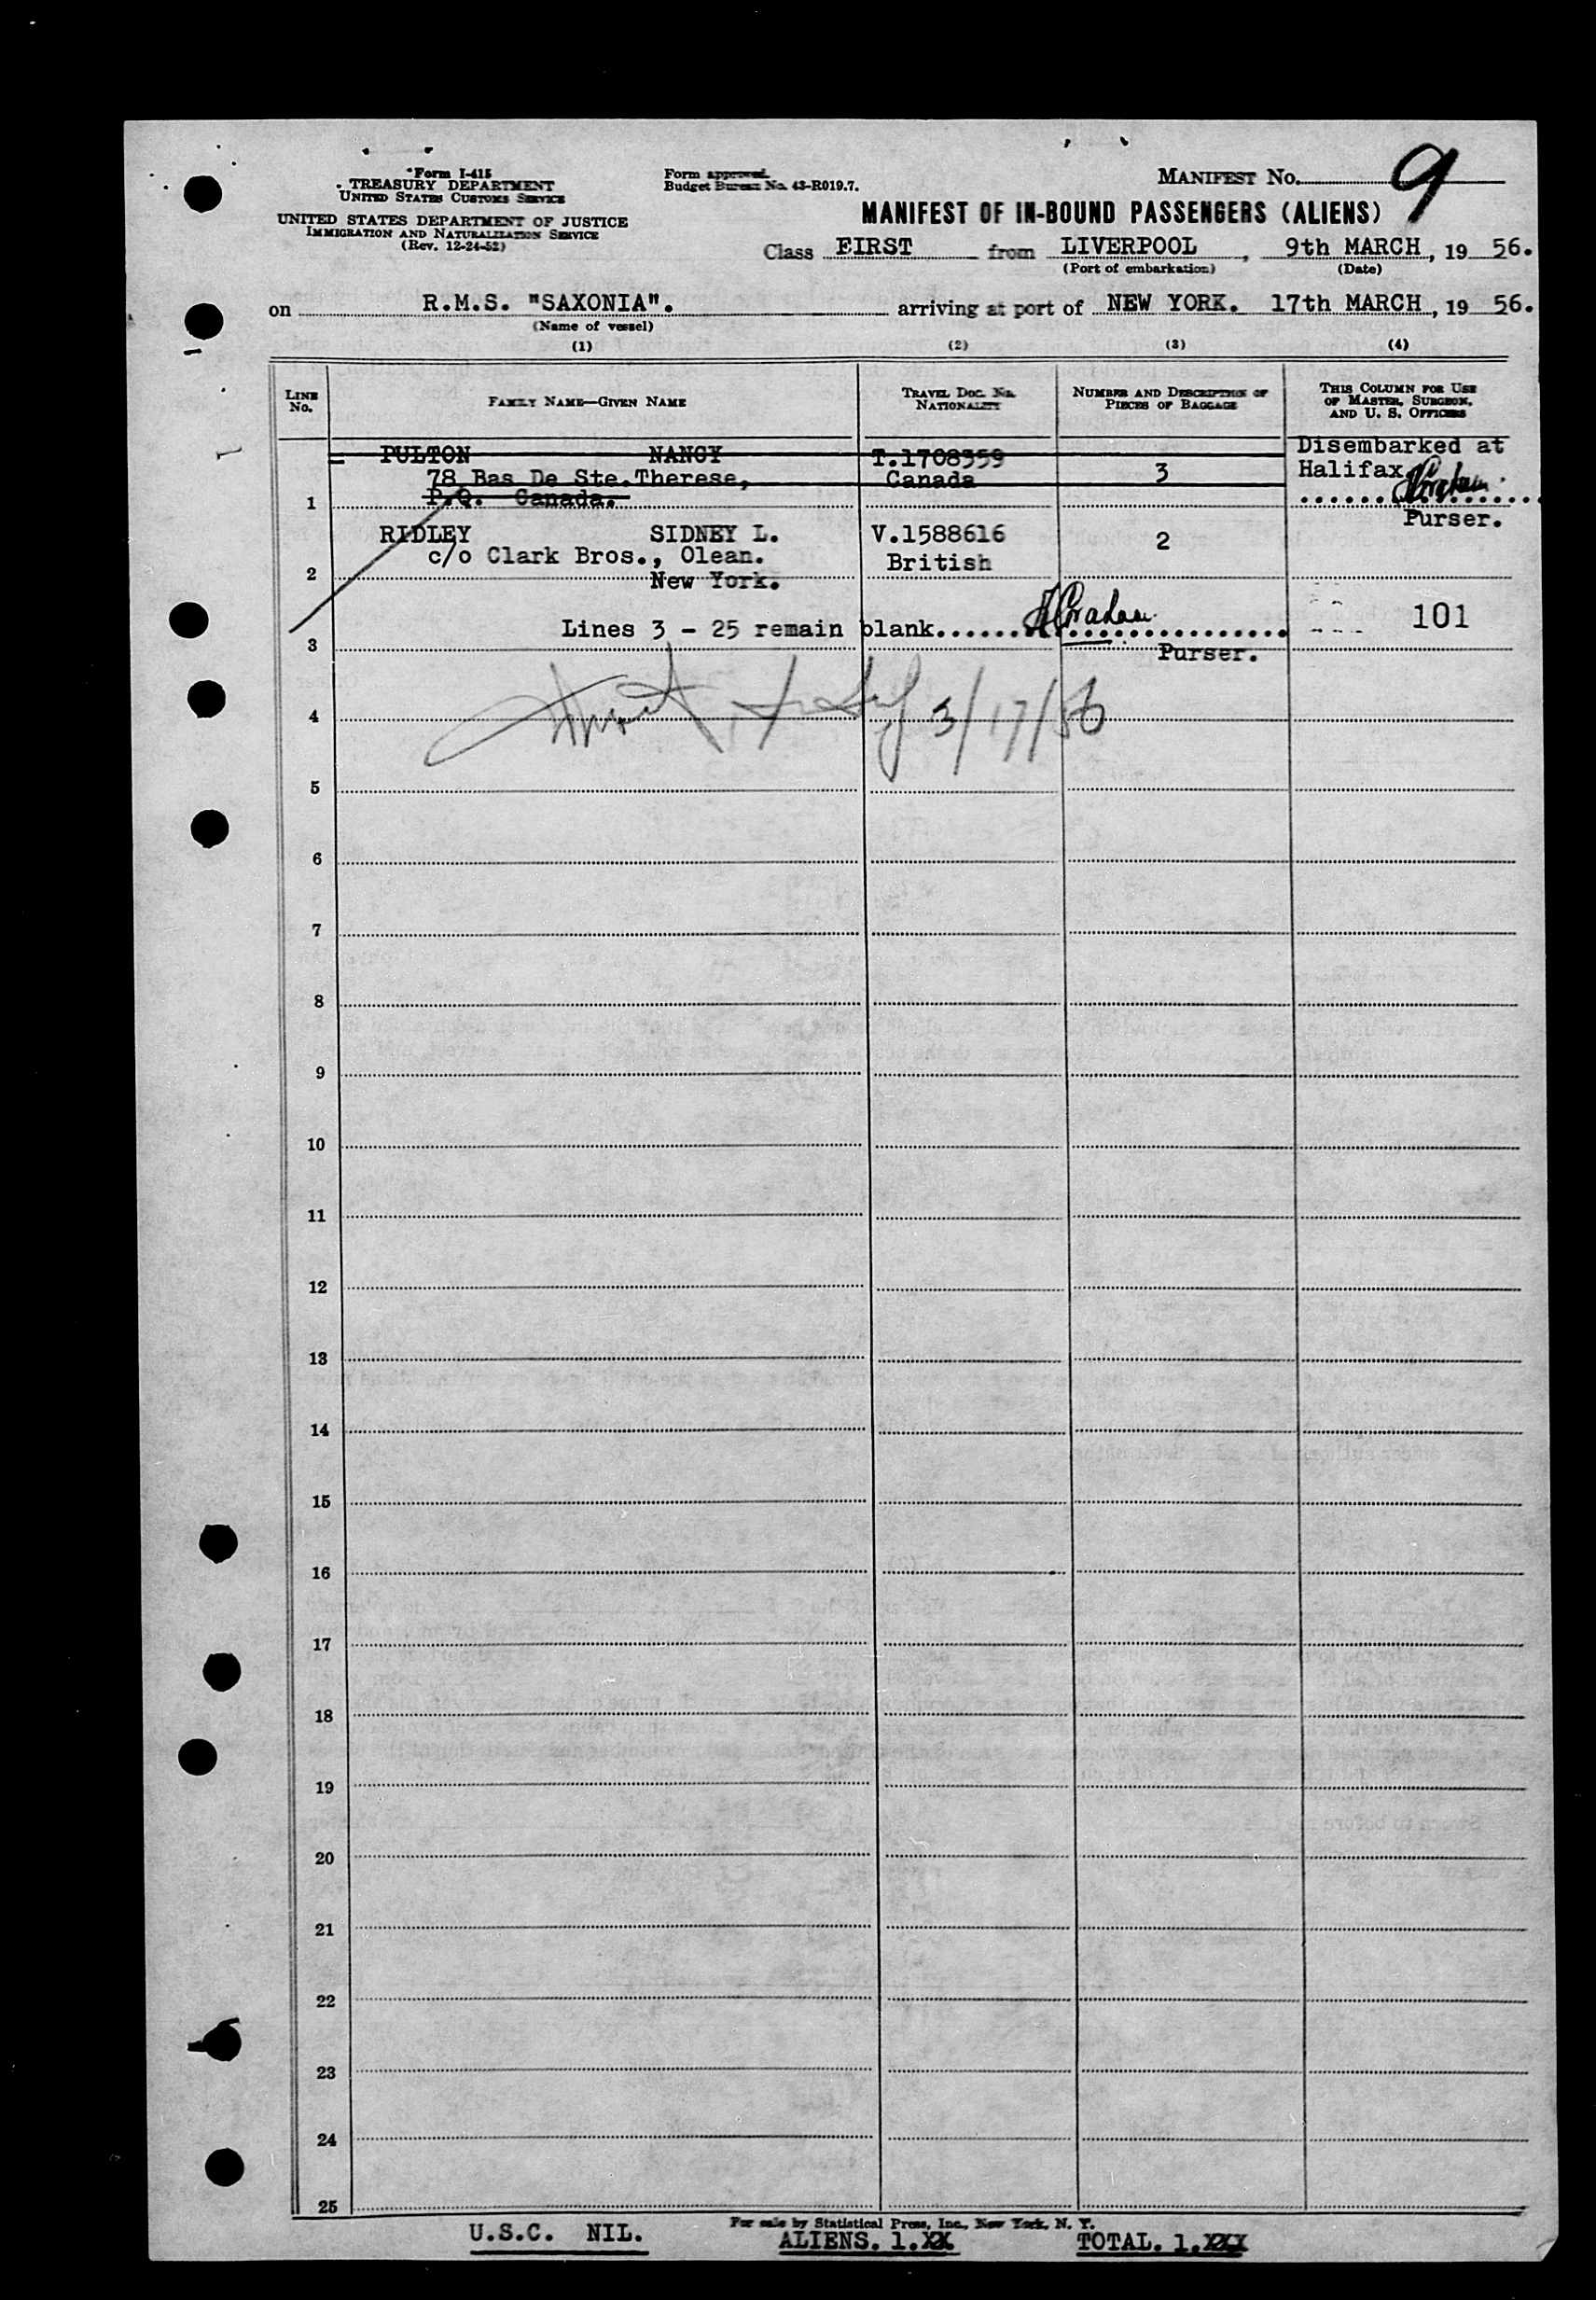 Form I-415
TREASURY DEPARTMENT
UNITED STATES CUSTOMS SERVICE
UNITED STATES DEPARTMENT OF JUSTICE
IMMIGRATION AND NATURALIZATION SERVICE
(Rev. 12-24-52)
Form approved.
Budget Bureau No. 43-R019.7.
MANIFEST NO. 9
MANIFEST OF IN-BOUND PASSENGERS (ALIENS)
Class FIRST from LIVERPOOL, 9th MARCH, 19 56.
(Port of embarkation) (Date)
on R.M.S. "SAXONIA". arriving at port of NEW YORK. 17th MARCH, 19 56.
(Name of vessel)
(1) (2) (3) (4)
LINE NO.
FAMILY NAME—GIVEN NAME
TRAVEL DOC. NO.
NATIONALITY
NUMBER AND DESCRIPTION OF
PIECES OF BAGGAGE
THIS COLUMN FOR USE
OF MASTER, SURGEON,
AND U. S. OFFICERS
PULTON NANCY T.1708359 Disembarked at
78 Bas De Ste.Therese, Canada 3 Halifax
1 P.Q. Canada. Graham
Purser.
RIDLEY SIDNEY L. V.1588616 2
c/o Clark Bros., Olean. British
2 New York.
Lines 3 - 25 remain blank....... Graham 101
3 Purser.
4 3/17/56
5
6
7
8
9
10
11
12
13
14
15
16
17
18
19
20
21
22
23
24
25
For sale by Statistical Press, Inc., New York, N. Y.
U.S.C. NIL. ALIENS. 1.XX TOTAL. 1.XXX